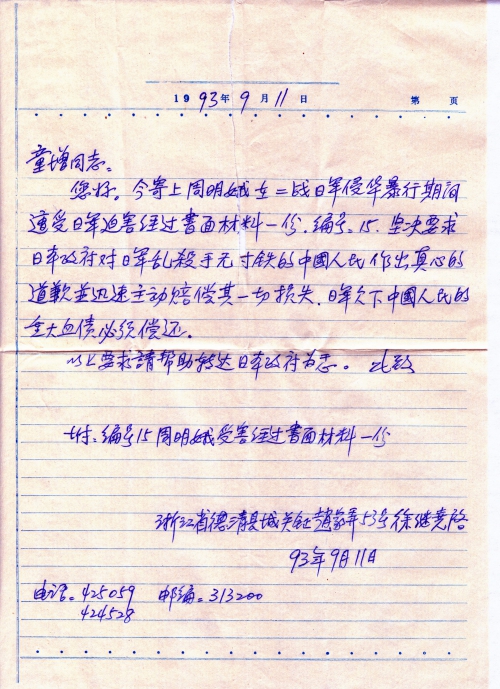 1993年9月11日 第 页
童增同志:
您好。今寄上周明娥在二战日军侵华暴行期间
遭受日军迫害经过書面材料一份.编号:15.坚决要求
日本政府对日军乱殺手无寸铁的中國人民作出真心的
道歉並迅速主动赔偿其一切损失.日军欠下中國人民的
重大血债必须偿还.
以上要求請帮助转达日本政府为志。此致
付:编号15周明娥受害经过書面材料一份
浙江省德清县城关鎮趙家弄53号徐继尭啓
93年9月11日
电话:425059 邮编:313200
424528